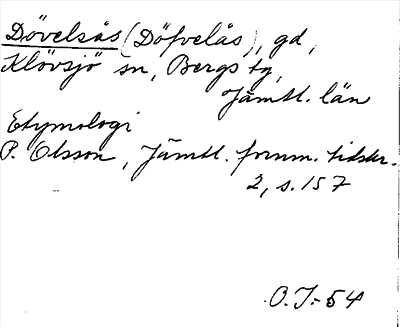 Dövelsås (Döfvelås), gd,
Klövsjö sn, Bergs tg,
Jämtl. län
Etymologi
P. Olsson, Jämtl. fornm. tidskr.
2, s. 157
O.J.-54